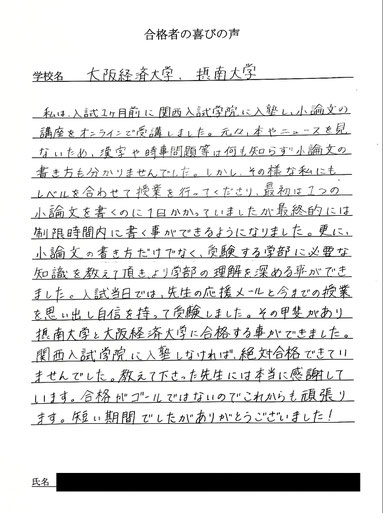 合格者の喜びの声
学校名 大阪経済大学、摂南大学
私は、入試2ヶ月前に関西入試学院に入塾し、小論文の
講座をオンラインで受講しました。元々、本やニュースを見
ないため、漢字や時事問題等は何も知らず小論文の
書き方も分かりませんでした。しかし、その様な私にも
レベルを合わせて授業を行ってくださり、最初は1つの
小論文を書くのに1日かかっていましたが最終的には
制限時間内に書く事ができるようになりました。更に、
小論文の書き方だけでなく、受験する学部に必要な
知識を教えて頂きより学部の理解を深める事ができ
ました。入試当日では、先生の応援メールと今までの授業
を思い出し自信を持って受験しました。その甲斐があり
摂南大学と大阪経済大学に合格する事ができました。
関西入試学院に入塾しなければ、絶対合格できてい
ませんでした。教えて下さった先生には本当に感謝して
います。合格がゴールではないのでこれからも頑張り
ます。短い期間でしたがありがとうございました！
氏名